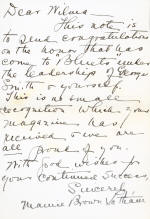 Dear Wilma
This note is
to send congratulations
on the honor that has
come to "Bluets" under
the leadership of George
Smith & yourself.
This is no small
recognition which your
magazine has
received & we are
all proud of you.
With good wishes for
your continued success,
Sincerely,
Maurice Brown